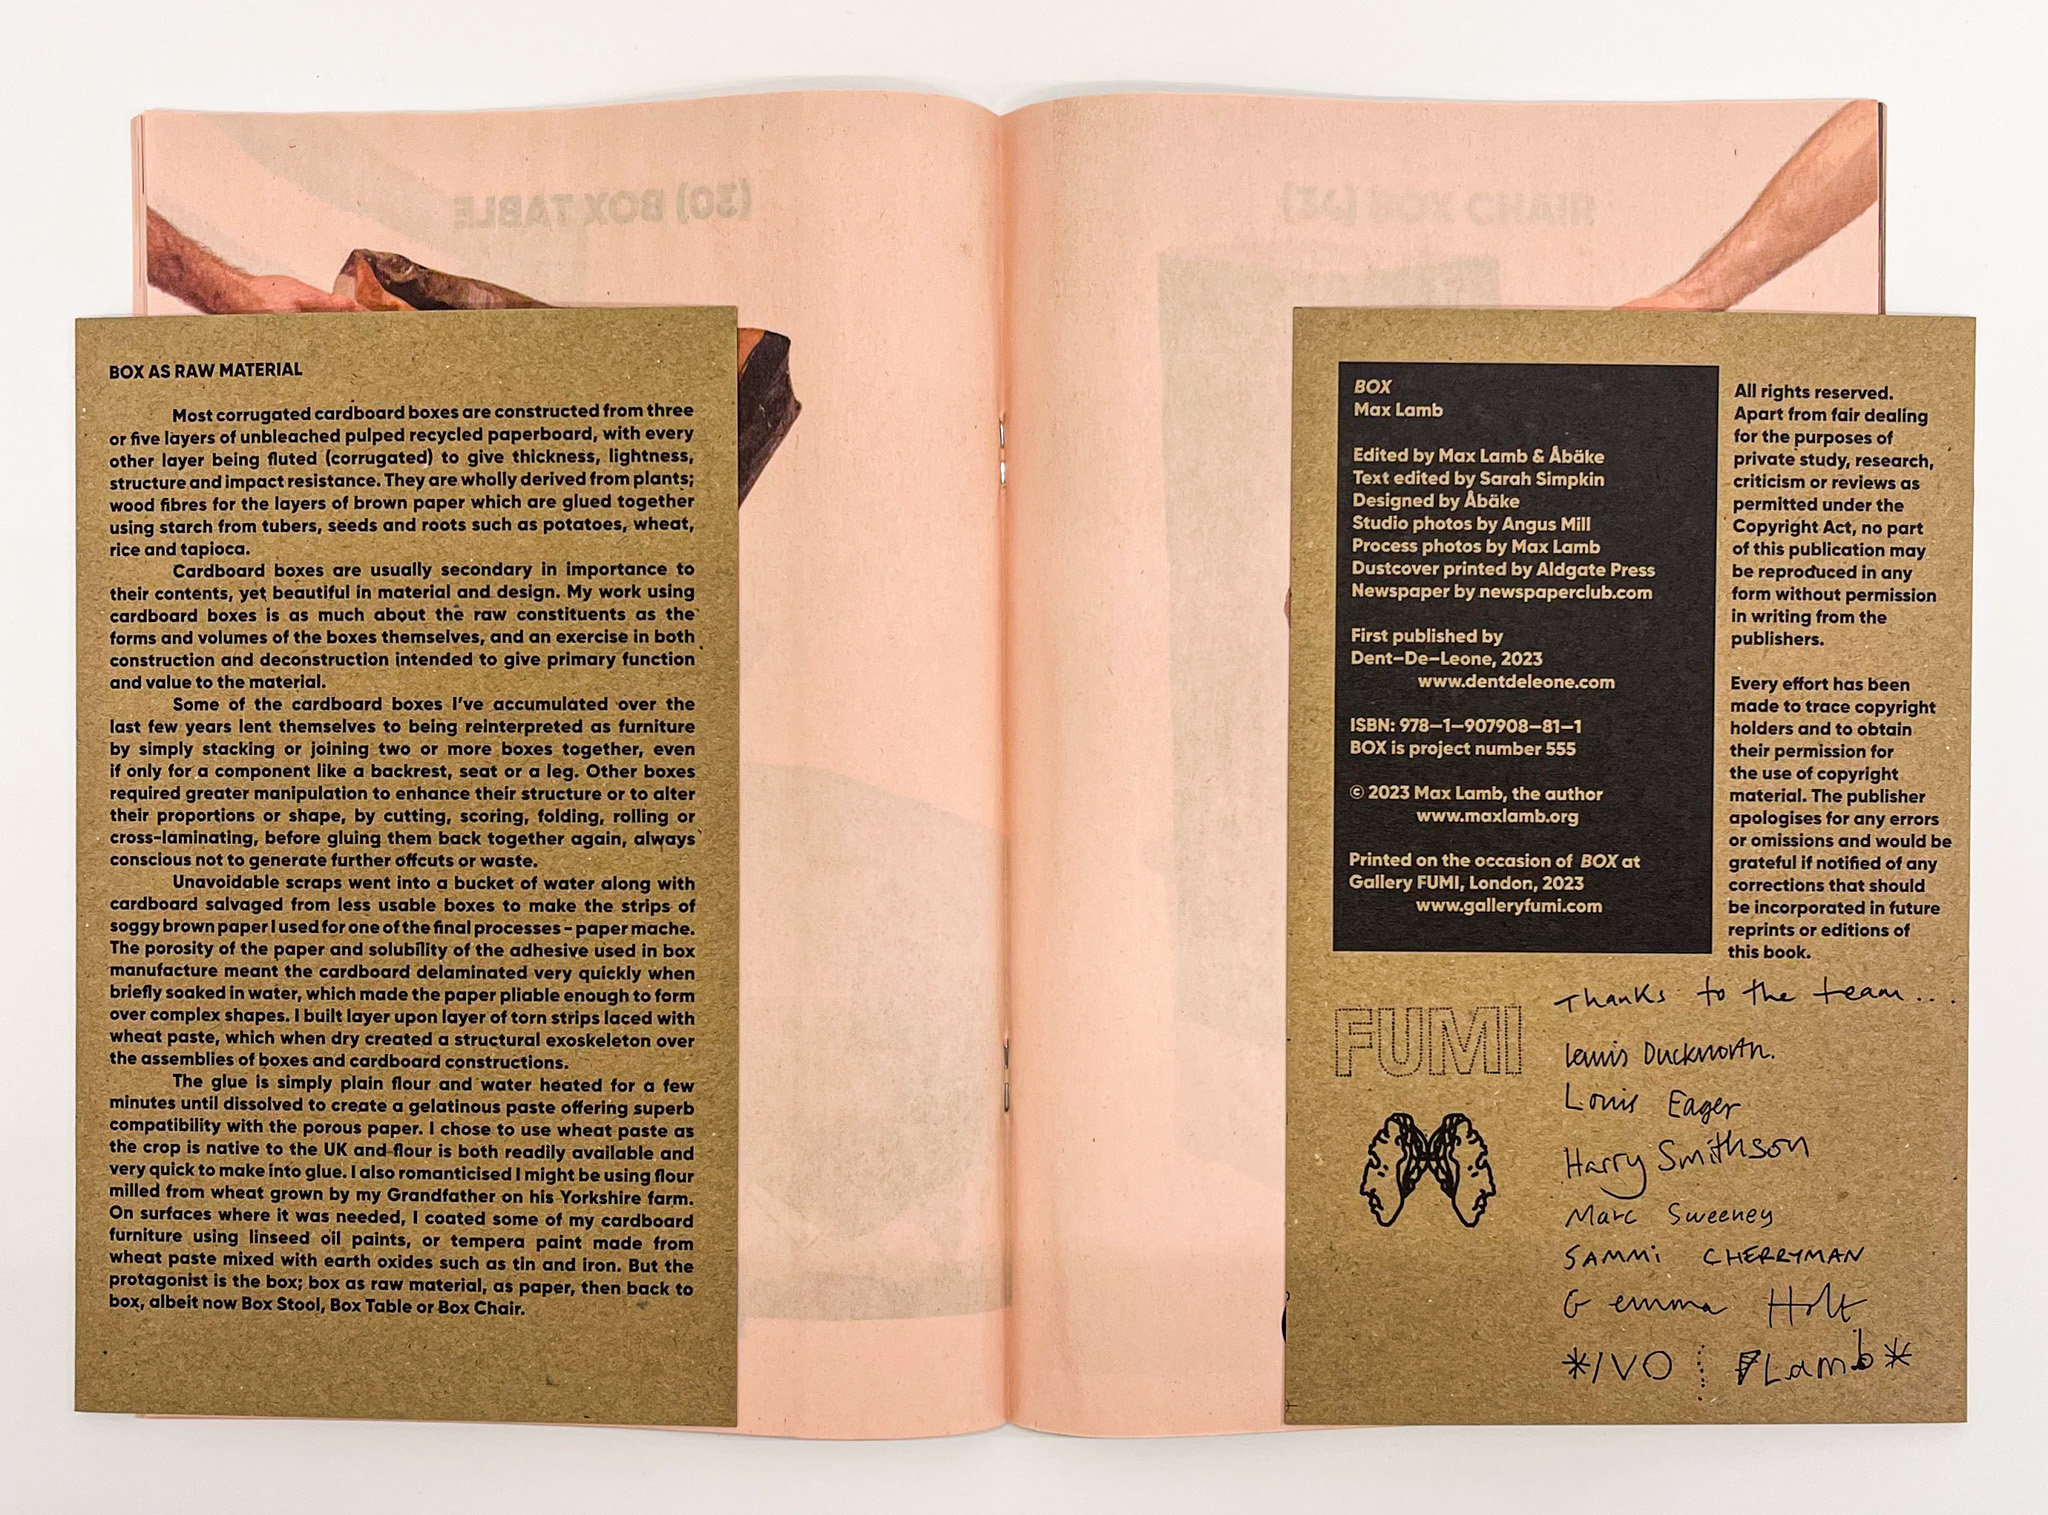 (30) BOX TABLE
BOX CHAIR
BOX AS RAW MATERIAL
Most corrugated cardboard boxes are constructed from three
or five layers of unbleached pulped recycled paperboard, with every
other layer being fluted (corrugated) to give thickness, lightness,
structure and impact resistance. They are wholly derived from plants;
wood fibres for the layers of brown paper which are glued together
using starch from tubers, seeds and roots such as potatoes, wheat,
rice and tapioca.
Cardboard boxes are usually secondary in importance to
their contents, yet beautiful in material and design. My work using
cardboard boxes is as much about the raw constituents as the
forms and volumes of the boxes themselves, and an exercise in both
construction and deconstruction intended to give primary function
and value to the material.
Some of the cardboard boxes I've accumulated over the
last few years lent themselves to being reinterpreted as furniture
by simply stacking or joining two or more boxes together, even
if only for a component like a backrest, seat or a leg. Other boxes
required greater manipulation to enhance their structure or to alter
their proportions or shape, by cutting, scoring, folding, rolling or
cross-laminating, before gluing them back together again, always
conscious not to generate further offcuts or waste.
Unavoidable scraps went into a bucket of water along with
cardboard salvaged from less usable boxes to make the strips of
soggy brown paper I used for one of the final processes – paper mache.
The porosity of the paper and solubility of the adhesive used in box
manufacture meant the cardboard delaminated very quickly when
briefly soaked in water, which made the paper pliable enough to form
over complex shapes. I built layer upon layer of torn strips laced with
wheat paste, which when dry created a structural exoskeleton over
the assemblies of boxes and cardboard constructions.
The glue is simply plain flour and water heated for a few
minutes until dissolved to create a gelatinous paste offering superb
compatibility with the porous paper. I chose to use wheat paste as
the crop is native to the UK and flour is both readily available and
very quick to make into glue. I also romanticised I might be using flour
milled from wheat grown by my Grandfather on his Yorkshire farm.
On surfaces where it was needed, I coated some of my cardboard
furniture using linseed oil paints, or tempera paint made from
wheat paste mixed with earth oxides such as tin and iron. But the
protagonist is the box; box as raw material, as paper, then back to
box, albeit now Box Stool, Box Table or Box Chair.
BOX
Max Lamb
Edited by Max Lamb & Åbäke
Text edited by Sarah Simpkin
Designed by Åbäke
Studio photos by Angus Mill
Process photos by Max Lamb
Dustcover printed by Aldgate Press
Newspaper by newspaperclub.com
First published by
Dent–De–Leone, 2023
www.dentdeleone.com
ISBN: 978–1–907908–81–1
BOX is project number 555
© 2023 Max Lamb, the author
www.maxlamb.org
Printed on the occasion of BOX at
Gallery FUMI, London, 2023
www.galleryfumi.com
All rights reserved.
Apart from fair dealing
for the purposes of
private study, research,
criticism or reviews as
permitted under the
Copyright Act, no part
of this publication may
be reproduced in any
form without permission
in writing from the
publishers.
Every effort has been
made to trace copyright
holders and to obtain
their permission for
the use of copyright
material. The publisher
apologises for any errors
or omissions and would be
grateful if notified of any
corrections that should
be incorporated in future
reprints or editions of
this book.
FUMI
Thanks to the team...
Lewis Duckworth.
Louis Eager
Harry Smithson
Marc Sweeney
SAMMi CHERRYMAN
Gemma Holt
*IVO Lamb*